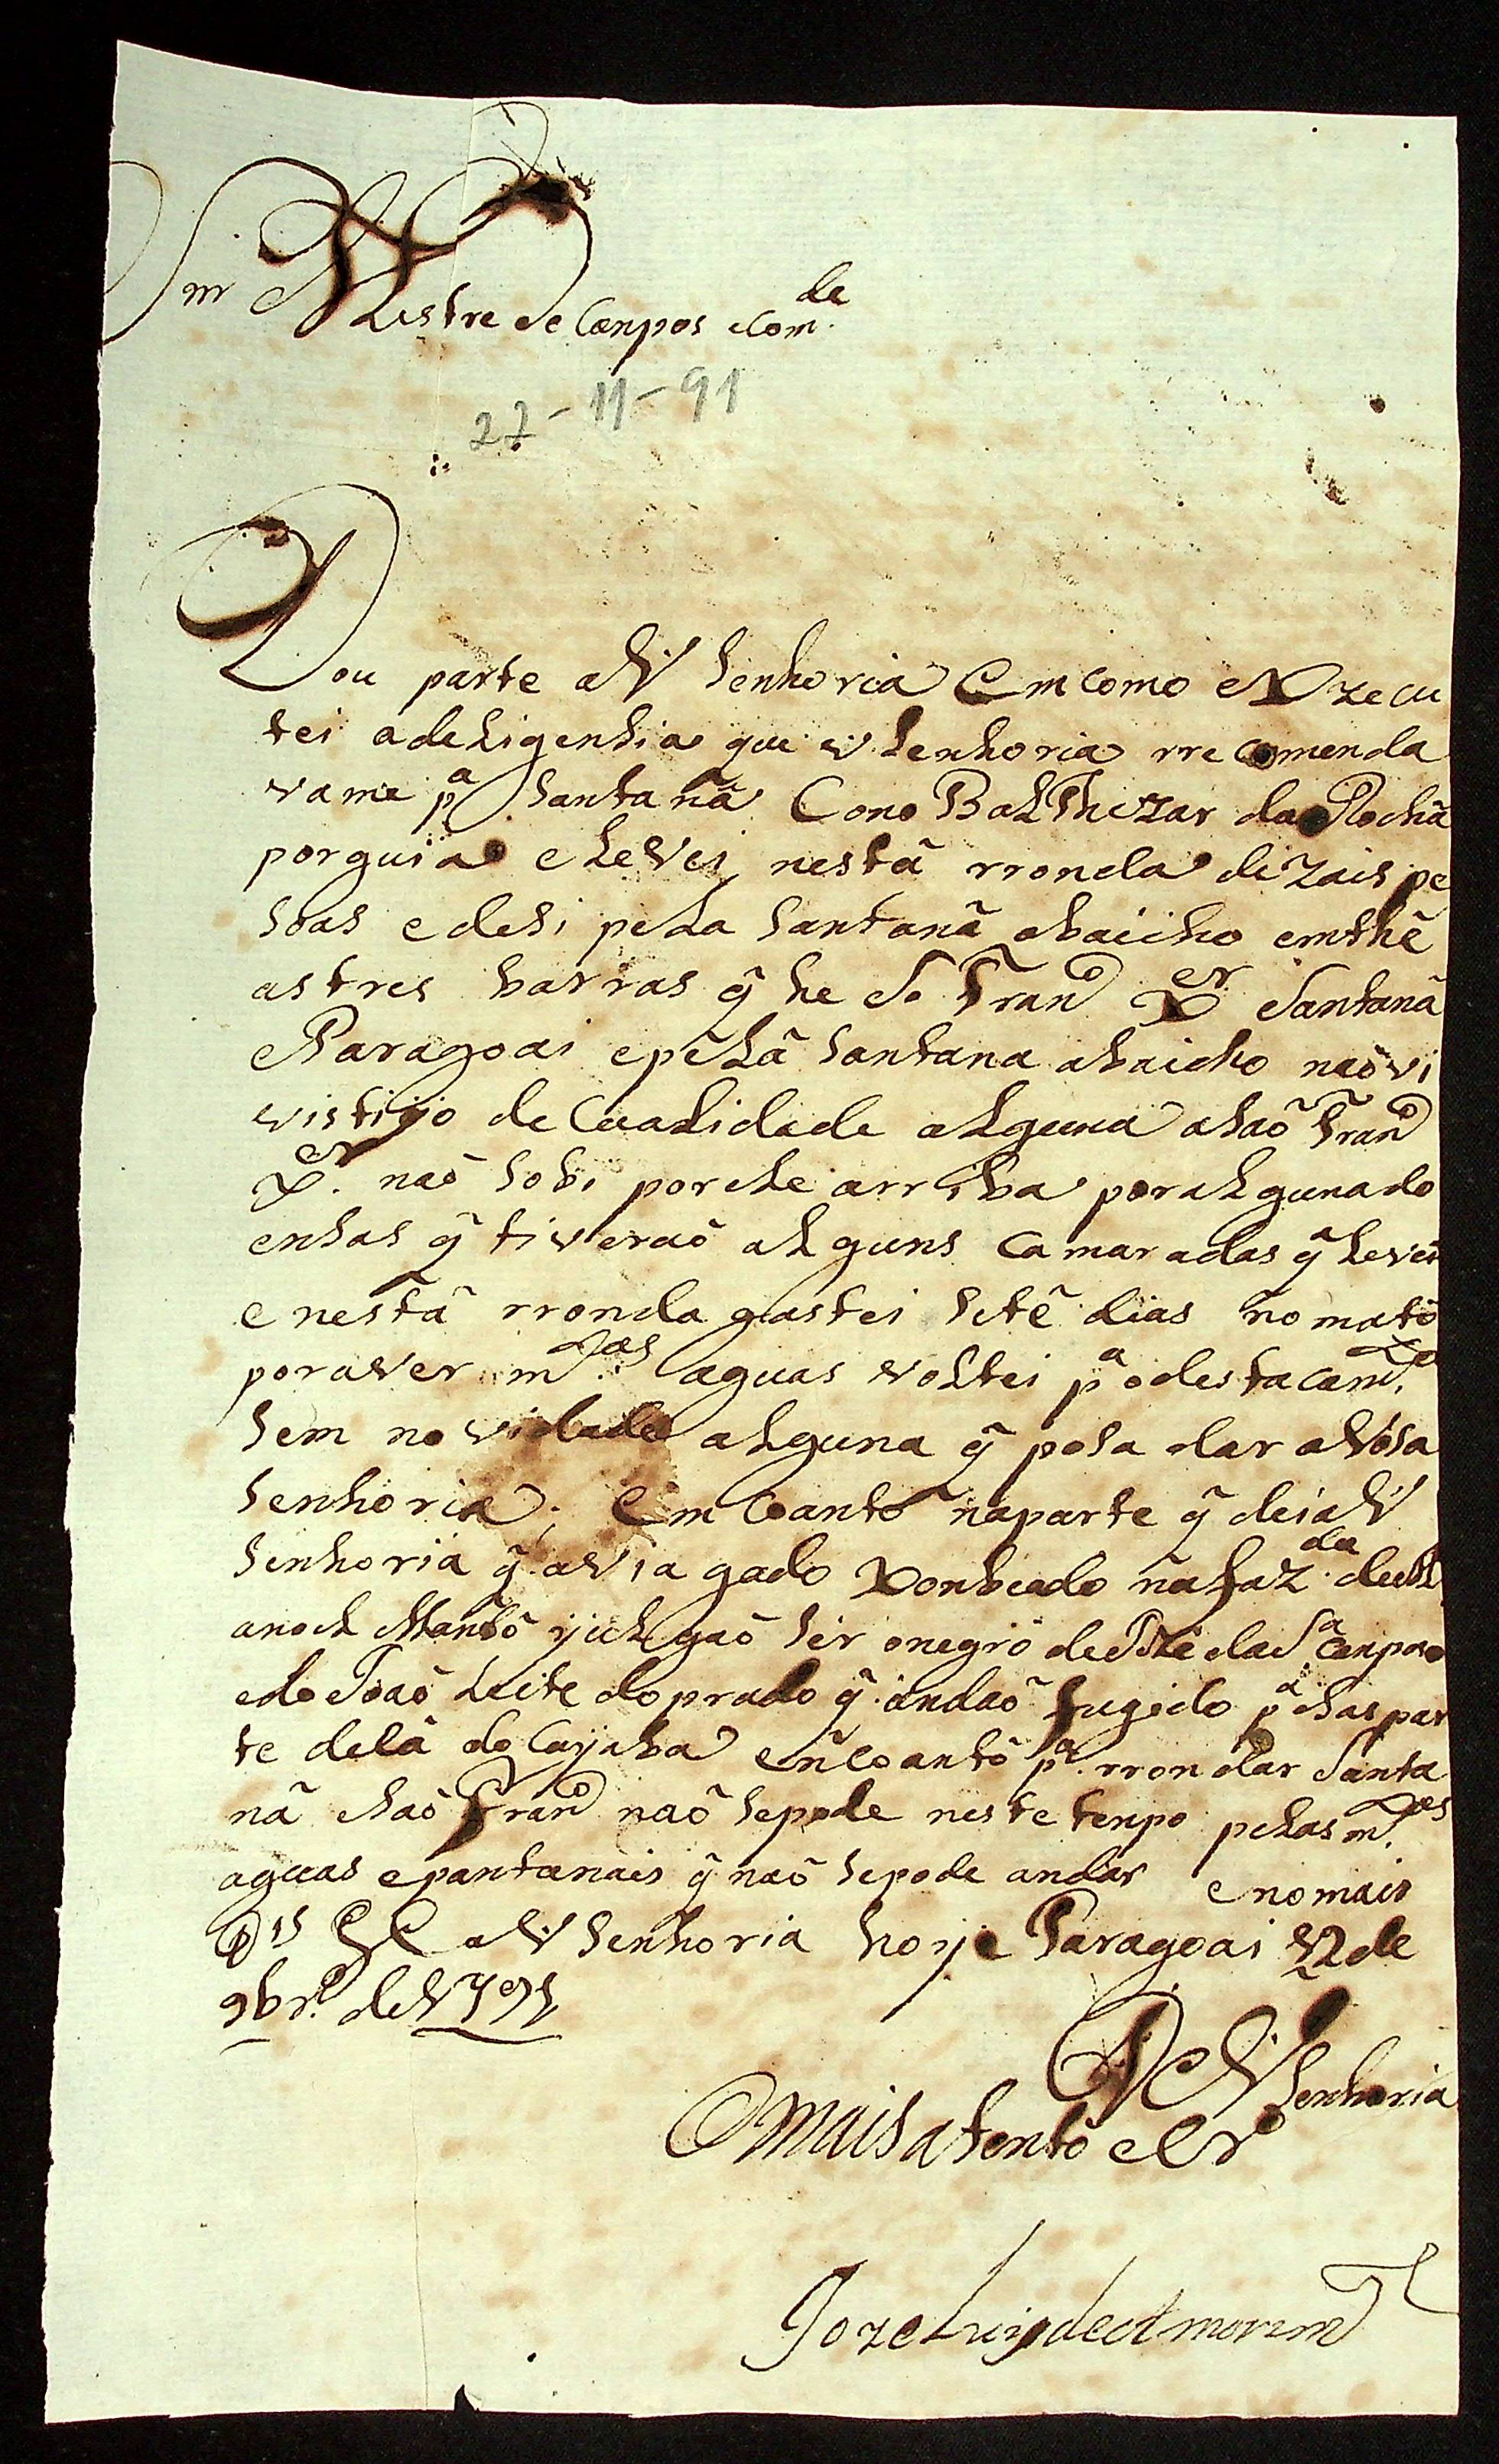 Snr Mestre de Canpos eCom.de
22-11-91
Dou parte aV Senhoria Emcomo eXzecu
tei adeligensia que v Senhoria rrecomenda
vame pa Santanã Cono Balthezar da Rochã
porguia e levei nestã rronda dizais pe
soas e desi pela Santanã abaicho emthẽ
astres barras q̃ he So Frano Xer Santanã
eParagoai epelã Santana abaicho naõ vi
vistijo de Coalidade alguna aSaõ Frano
Xer. naõ Sobi porele arriba poralguna do
ensas q̃ tiveraõ alguns Camaradas q̃ levei
e nestã rronda gastei Setẽ dias no matõ
poraver m.tas aguas voltei pa odestacam.to
Sem novidade alguna q̃ posa dar aVosa
Senhoria; Em Coantõ naparte q̃ dei aV
Senhoria q̃ avia gado Xonbeado nafaz.da de
anoel yulgaõ Ser onegrõ de da Sa Canpos
edo Joaõ Leite doprado q̃ andaõ fugido pa Has par
te delã do Cuyaba enCoantõ pa. rrondar Santa
nã eSaõ Frano naõ Sepode neste tenpo pelas m.tas
aguas epantanais q̃ naõ Sepode andar enomais
Ds Ge aV Senhoria hoje Paragoai 22 de
9br.o de 1791
De V Senhoria
Omais atentõ eCro
Joze Luis de Amorim